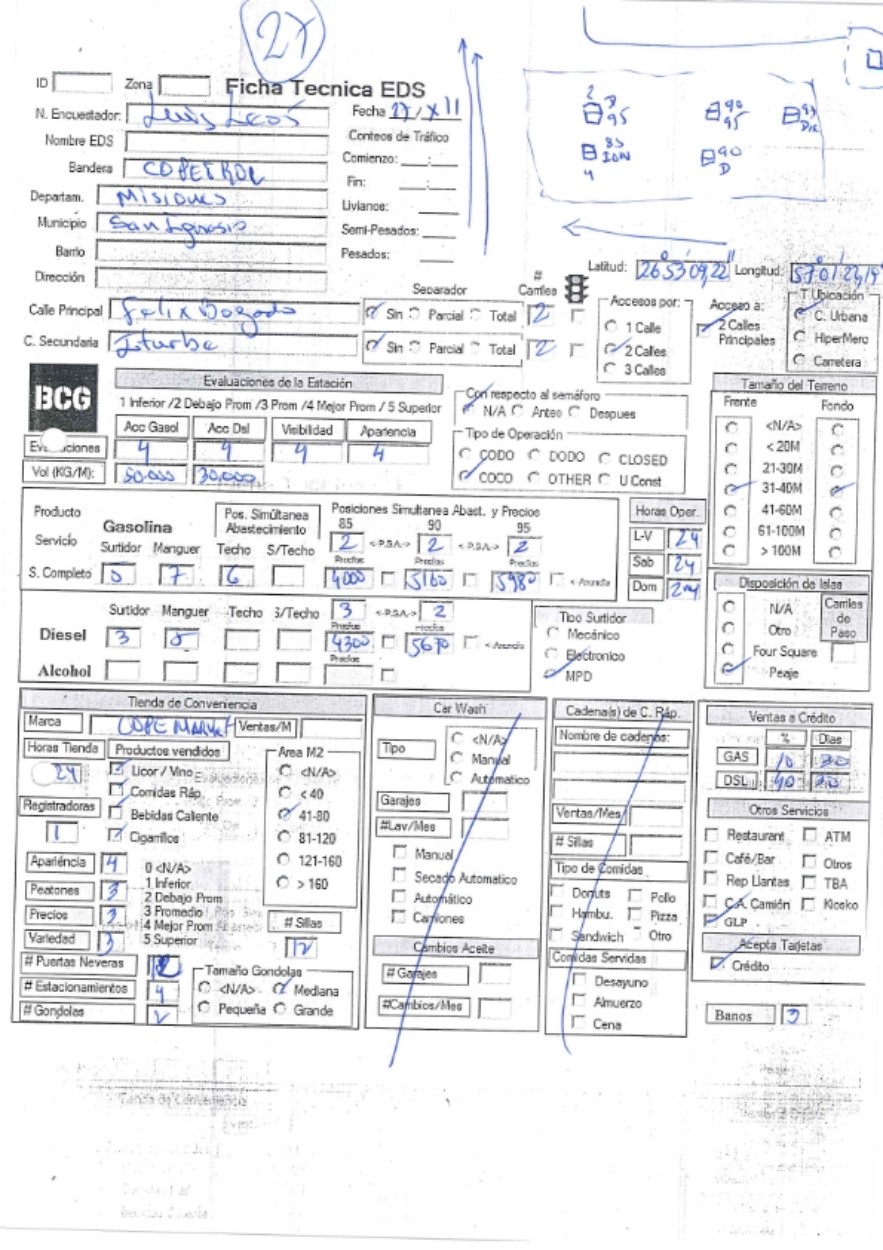 27
2 D 95
90 95
95 Die
85 ION 4
90 D
ID Zona Ficha Tecnica EDS
N. Encuestador: Luis Leos Fecha 27/XII
Nombre EDS Conteos de Tráfico
Bandera COPETROL Comienzo: __:__
Departam. Misiones Fin: __:__
Municipio San Ignasio Livianos: ____
Barrio Semi-Pesados: ____
Dirección Pesados: ____
Latitud: 26°53'09,22" Longitud: 57°01'
Separador # Carriles
Calle Principal Felix Bogado Sin Parcial Total 2
C. Secundaria Iturbe Sin Parcial Total 2
Accesos por:
1 Calle
2 Calles
3 Calles
Acceso a:
2 Calles Principales
T Ubicación
C. Urbana
HiperMerc
Carretera
BCG
Evaluaciones de la Estación
1 Inferior /2 Debajo Prom /3 Prom /4 Mejor Prom / 5 Superior
Acc Gasol Acc Dsl Visibilidad Apariencia
4 4 4 4
Vol (KG/M): 50.000 30.000
Con respecto al semáforo
N/A Antes Despues
Tipo de Operación
CODO DODO CLOSED
COCO OTHER U Const
Tamaño del Terreno
Frente Fondo
<N/A>
< 20M
21-30M
31-40M
41-60M
61-100M
> 100M
Producto Gasolina
Servicio
Pos. Simúltanea Abastecimiento
Posiciones Simultanea Abast. y Precios
85 90 95
2 <-P.S.A.-> 2 <-P.S.A.-> 2
Surtidor Manguer Techo S/Techo Precios Precios Precios
S. Completo 5 7 6 4000 5160 5980 <-Anuncia
Horas Oper.
L-V 24
Sab 24
Dom 24
Surtidor Manguer Techo S/Techo 3 <-P.S.A.-> 2
Precios Precios
Diesel 3 5 4300 5670 <-Anuncia
Precios
Alcohol
Tipo Surtidor
Mecánico
Electronico
MPD
Disposición de Islas
N/A
Otro
Four Square
Peaje
Carriles de Paso
Tienda de Conveniencia
Marca COPE MARKET Ventas/M
Horas Tienda 24
Productos vendidos
Licor / Vino
Comidas Ráp.
Bebidas Caliente
Cigarrillos
Registradoras 1
Area M2
<N/A>
< 40
41-80
81-120
121-160
> 160
Apariéncia 4
Peatones 3
Precios 3
Variedad 3
0 <N/A>
1 Inferior
2 Debajo Prom
3 Promedio
4 Mejor Prom
5 Superior
# Sillas 12
# Puertas Neveras
# Estacionamientos 4
# Gondolas
Tamaño Gondolas
<N/A> Mediana
Pequeña Grande
Car Wash
Tipo
<N/A>
Manual
Automatico
Garajes
#Lav/Mes
Manual
Secado Automatico
Automático
Camiones
Cambios Aceite
# Garajes
#Cambios/Mes
Cadena(s) de C. Ráp.
Nombre de cadenas:
Ventas/Mes
# Sillas
Tipo de Comidas
Donuts Pollo
Hambu. Pizza
Sandwich Otro
Comidas Servidas
Desayuno
Almuerzo
Cena
Ventas a Crédito
% Dias
GAS 10 30
DSL 40 30
Otros Servicios
Restaurant ATM
Café/Bar Otros
Rep Llantas TBA
C.A. Camión Kiosko
GLP
Acepta Tarjetas
Crédito
Banos 3